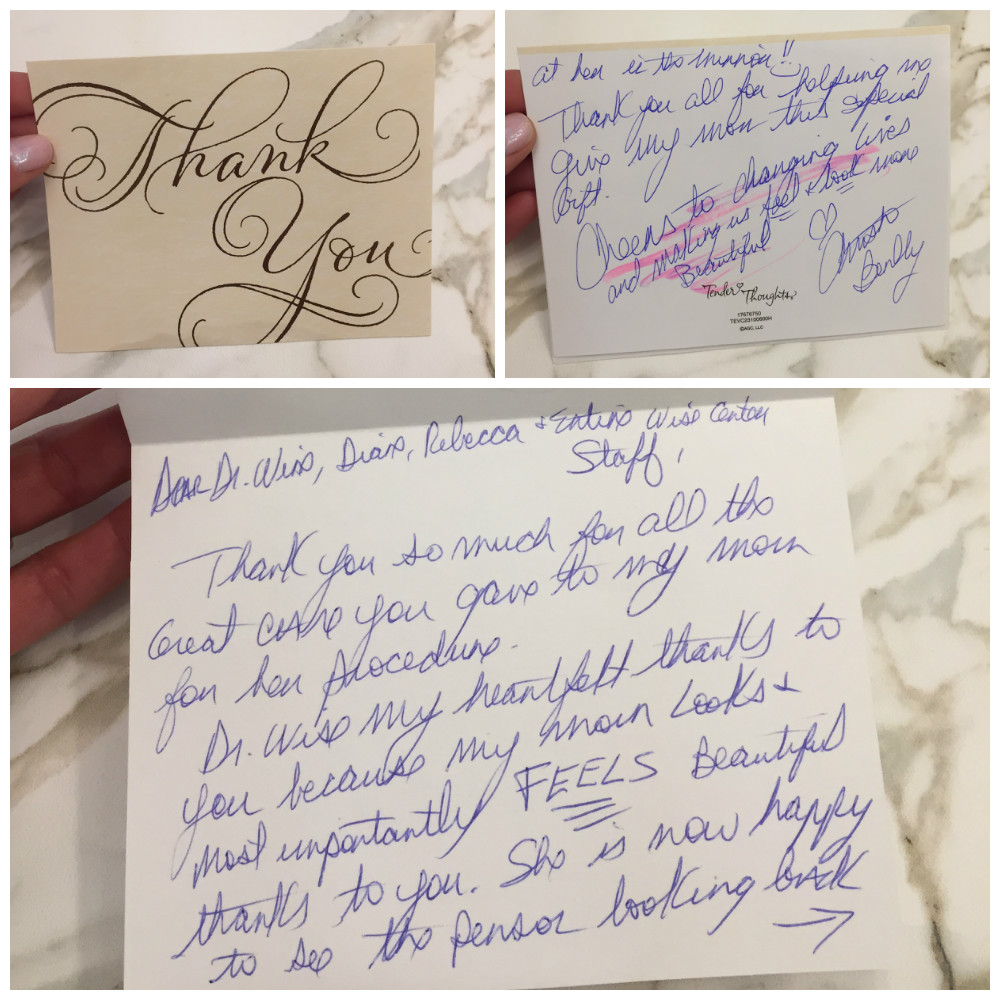 Thank
You
at her in the mirror!!
Thank you all for helping me
give my mom this special
Gift.
Cheers to changing lives
and making us feel + look more
Beautiful
Tender Thoughts
17576750
©AGC, LLC
Dear Dr. Wise, Diane, Rebecca + Entire Wise Center
Staff,
Thank you so much for all the
Great care you gave to my mom
for her procedure.
Dr. Wise my heartfelt thanks to
you because my mom Looks +
most importantly FEELS Beautiful
thanks to you. She is now happy
to see the person looking back